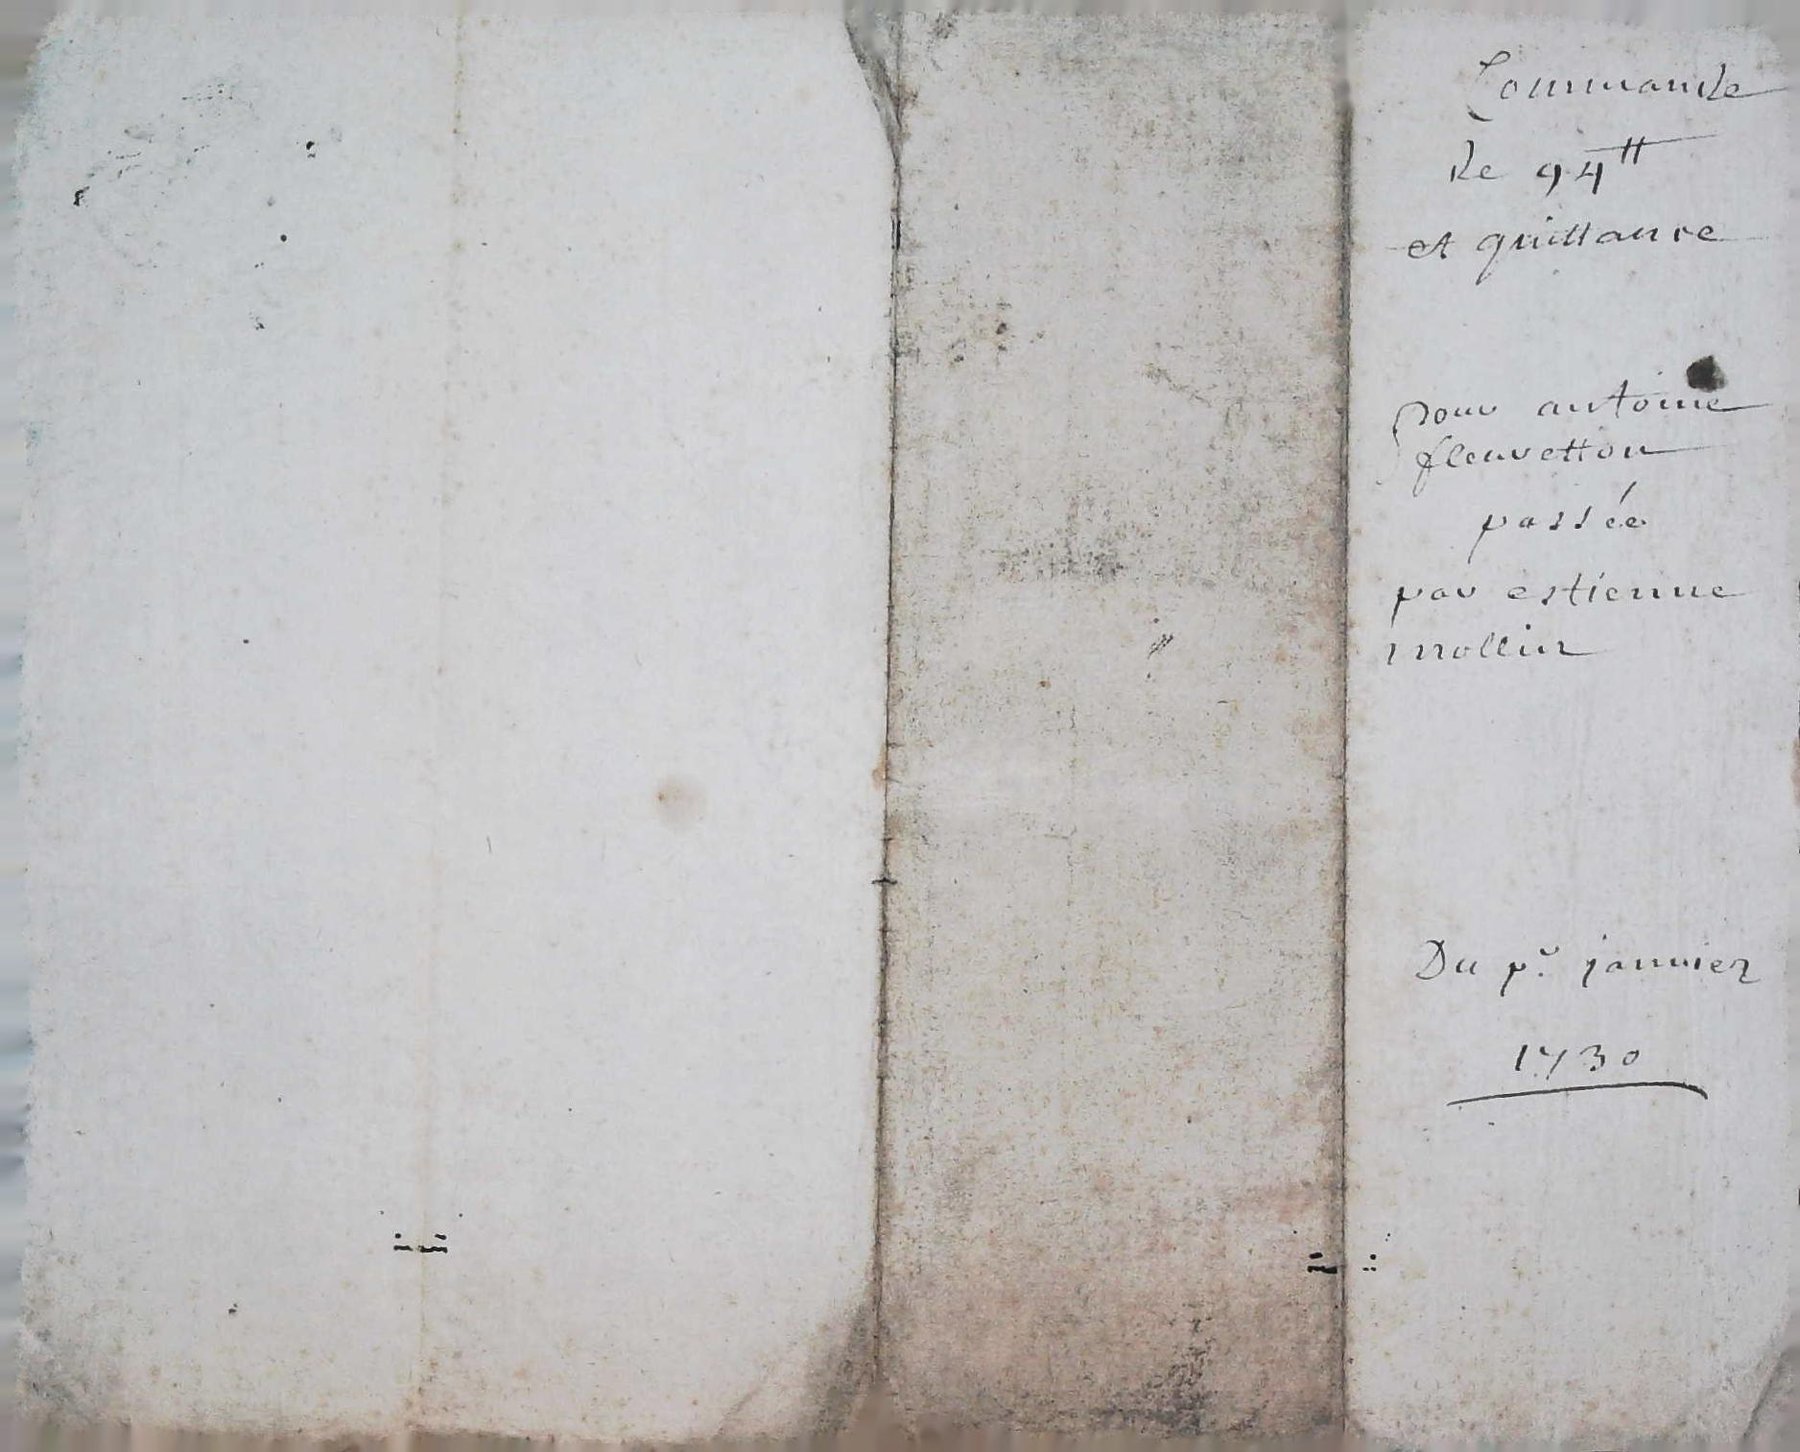 Commande
de 94tt
et quittance
pour antoine
fleuvetton
passée
par estienne
mollin
Du pr janvier
1730